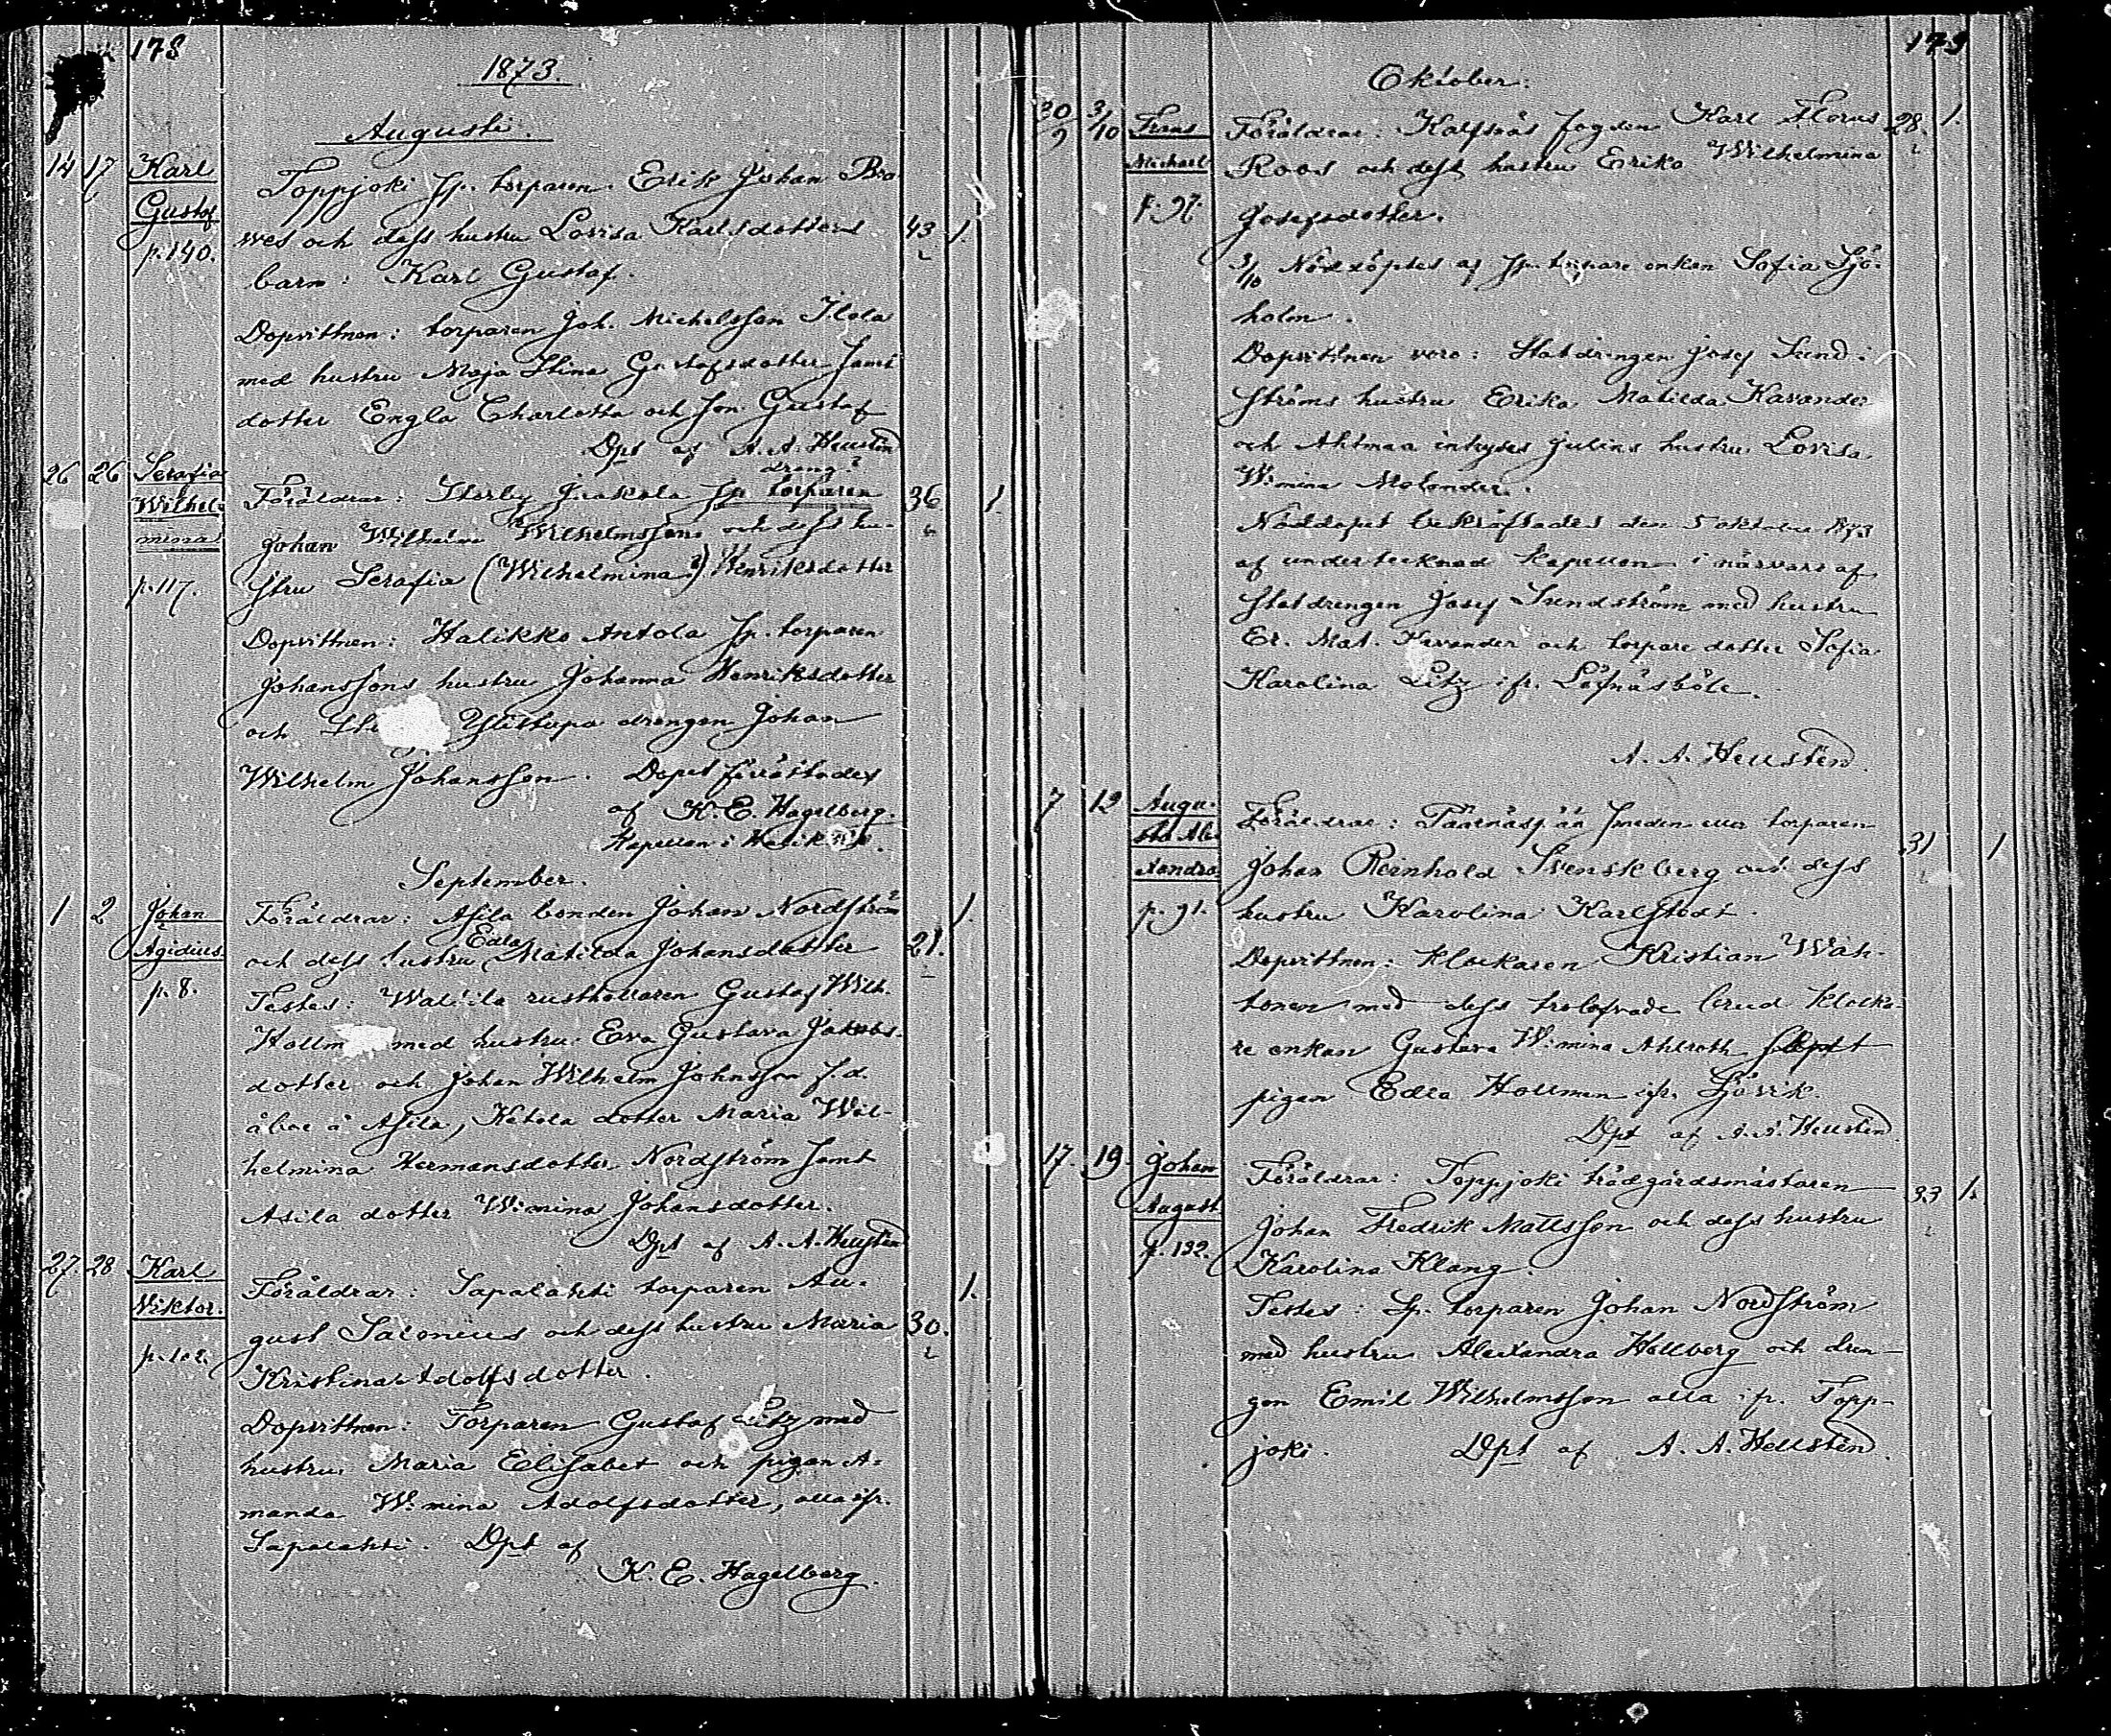 178
1873.
Augusti.
14 17 Karl Toppjoki sp. torparen Erik Johan Bra-
Gustaf wes och dess hustru Lovisa Karlsdotters 43 1.
p. 140. barn: Karl Gustaf.
Dopvittnen: torparen Joh. Michelsson Ilola
med hustru Maja Stina Gustafsdotter samt
dotter Engla Charlotta och son Gustaf
Dpt af A. A. Hellstén
dreng?
26 26 Serafia Föräldrar: Storby Jaakola sp torparen 36 1.
Wilhel- Johan Wilhelm Wilhelmsson och dess hu-
mina stru Serafia (Wilhelmina?) Henriksdotter
p. 117.
Dopvittnen: Halikko Antola sp. torparen
Johanssons hustru Johanna Henriksdotter
och Ylistupa drengen Johan
Wilhelm Johansson. Dopet förrättades
af K. E. Hagelberg.
Kapellan i Halikko.
September.
1 2 Johan Föräldrar: Asila bonden Johan Nordström 1.
Agidius och dess hustru Edla Matilda Johansdotter 21.
p. 8. Testes: rusthållaren Gustaf Wilh.
Hollm med hustru Eva Gustava Jakobs-
dotter och Johan Wilhelm Johnsson f. d.
åboe å Asila, Ketola dotter Maria Wil-
helmina Hermansdotter Nordström samt
Asila dotter W:mina Johansdotter.
Dpt af A. A. Hellstén
27. 28 Karl Föräldrar: Sapalahti torparen Au- 1.
Viktor. gust Salonius och dess hustru Maria 30.
p. 102. Kristina Adolfsdotter.
Dopvittnen: Torparen Gustaf Litz med
hustru Maria Elisabet och pigan A-
manda W:mina Adolfsdotter, alla ifr.
Sapalahti. Dpt af
K. E. Hagelberg.
179
Oktober.
30/9 3/10 Frans Föräldrar: Kalfsnäs fogden Karl Florus 28. 1.
Michael Roos och dess hustru Erika Wilhelmina
p. 97. Josefsdotter.
3/10 Nöddöptes af sp. torpare enkan Sofia Sjö-
holm.
Dopvittnen voro: Statdrengen Josef Sund-
ströms hustru Erika Matilda Kavander
och Ahtmaa inhyses Julins hustru Lovisa
W:mina Melander.
Nöddopet bekräftades den 5 oktober 1873
af undertecknad kapellan i närvaro af
statdrengen Josef Sundström med hustru
Er. Mat. Kavander och torpare dotter Sofia
Karolina Litz ifr. Löfnäsböle.
A. A. Hellstén.
7 12 Augu- Föräldrar: smeden torparen
sta Ale- Johan Reinhold Svenskberg och dess 31 1
xandra hustru Karolina Karlstedt.
p. 91.
Dopvittnen: Klockaren Kristian Wah-
tonen med dess trolofvade brud klocka-
re enkan Gustava W:mina Ahlroth samt
pigan Edla Hollmen ifr. Sjövik.
Dpt af A. A. Hellstén.
17. 19. Johan Föräldrar: Toppjoki trädgårdsmästaren 33 1.
August Johan Fredrik Mattsson och dess hustru
p. 132. Karolina Klang.
Testes: Sp. torparen Johan Nordström
med hustru Alexandra Hellberg och dren-
gen Emil Wilhelmsson alla ifr. Topp-
joki. Dpt af A. A. Hellstén.